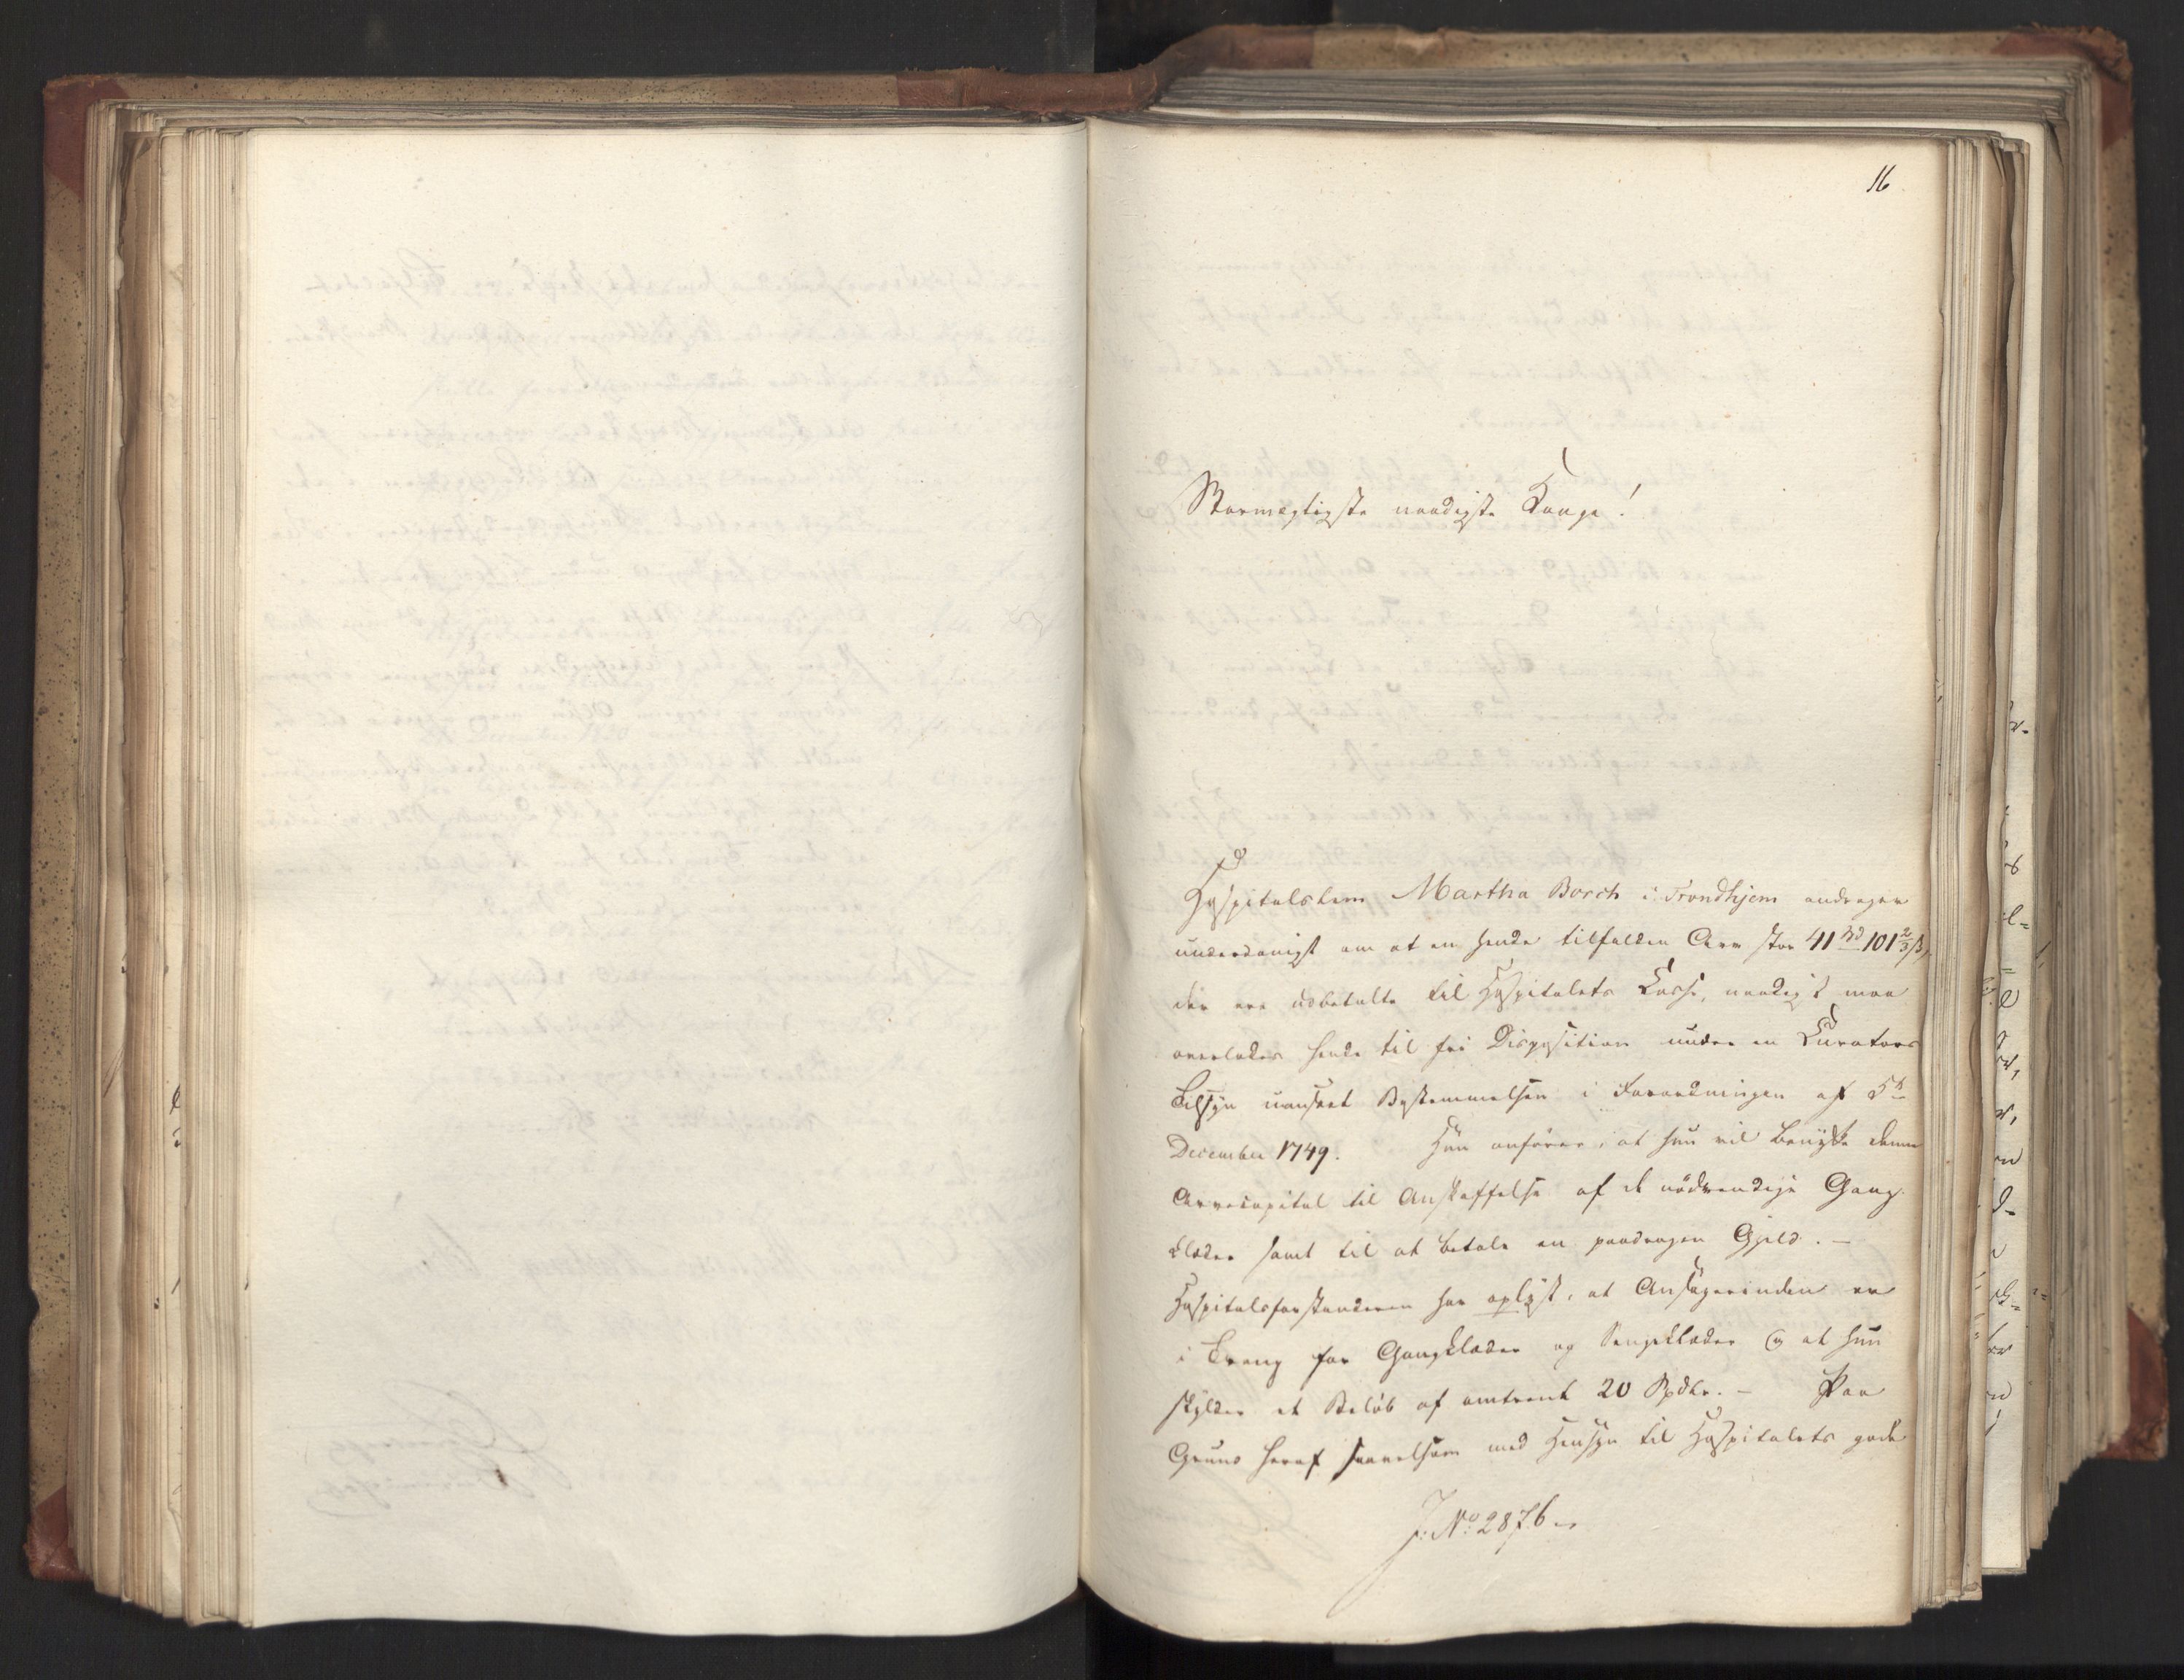 16
Stormægtigste naadigste Konge!
Hospitalslem Martha Borch i Trondhjem andrager
underdanigst om at en hende tilfalden Arv stor 41 Spd 101 2/3 ß,
der ere udbetalte til Hospitalets Casse, naadigst maa
overlades hende til fri Disposition under en Curators
Tilsyn uanseet Bestemmelsen i Forordningen af 5te
December 1749. Hun anfører, at hun vil benytte denne
Arvecapital til Anskaffelse af de nödvendige Gang-
klæder samt til at betale en paadragen Gjeld. —
Hospitalsforstanderen har oplyst, at Ansøgerinden er
i Trang for Gangklæder og Sengeklæder og at hun
skylder et Beløb af omtrent 20 Spdlr. — Paa
Grund heraf saavelsom med Hensyn til Hospitalets gode
J: No: 2876